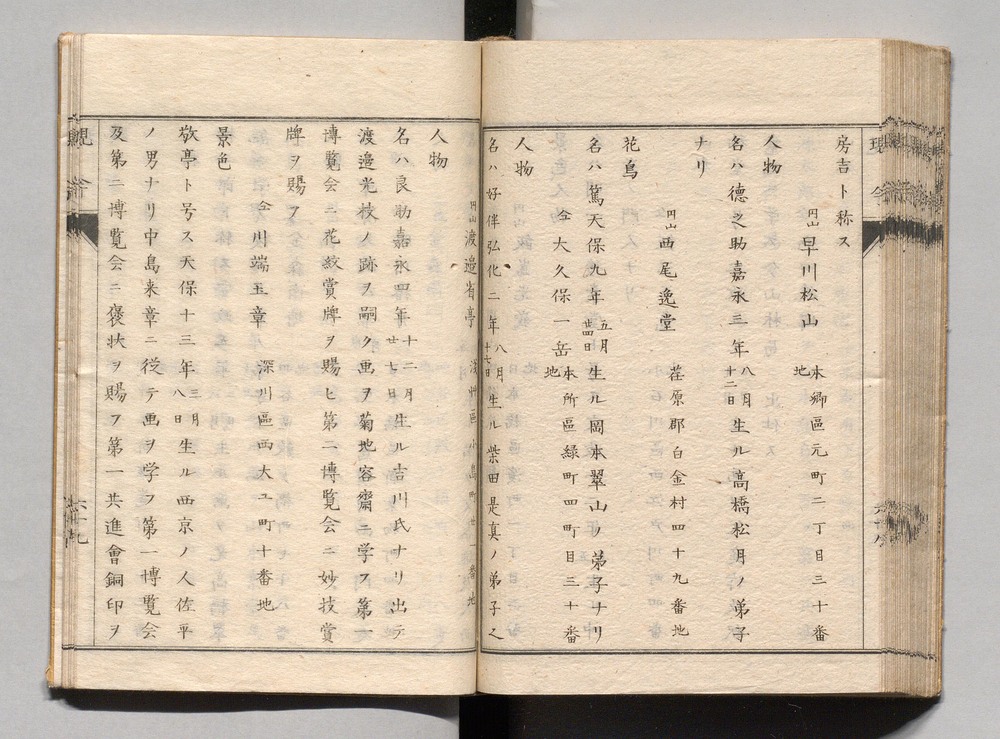 房吉ト称ス
円山 早川松山 本郷區元町二丁目三十番地
人物
名ハ德之助嘉永三年八月十二日生ル高橋松月ノ弟子
ナリ
円山 西尾逸堂 荏原郡白金村四十九番地
花鳥
名ハ篤天保九年五月廿四日生ル岡本翠山ノ弟子ナリ
仝 大久保一岳 本所區緑町四町目三十番地
人物
名ハ好伴弘化二年八月十七日生ル柴田是真ノ弟子之
円山 渡邉省亭 淺艸區小島町廿一番地
人物
名ハ良助嘉永四年十二月廿七日生ル吉川氏ナリ出テ
渡邉光枝ノ跡ヲ嗣ク画ヲ菊地容齋ニ学フ第一
博覧会ニ花紋賞牌ヲ賜ヒ第二博覧会ニ妙技賞
牌ヲ賜フ
仝 川端玉章 深川區西大工町十番地
景色
敬亭ト号ス天保十三年三月八日生ル西京ノ人佐平
ノ男ナリ中島来章ニ従テ画ヲ学フ第一博覧会
及第二博覧会ニ褒状ヲ賜フ第一共進會銅印ヲ